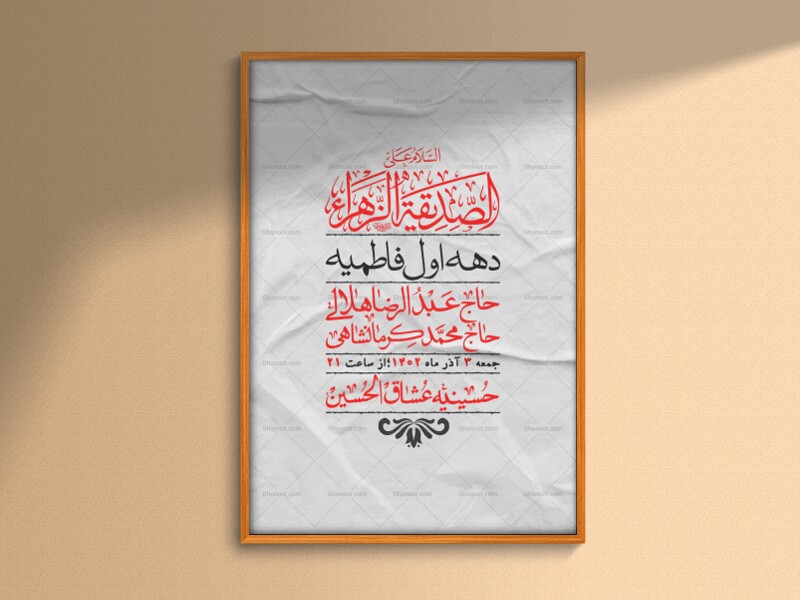 السلام علی
الصدیقة الزهراء
دهه اول فاطمیه
حاج عبدالرضا هلالی
حاج محمد کرمانشاهی
جمعه ۳ آذر ماه ۱۴۰۲؛ از ساعت ۲۱
حسینیه عشاق الحسین
Ghonoot.com